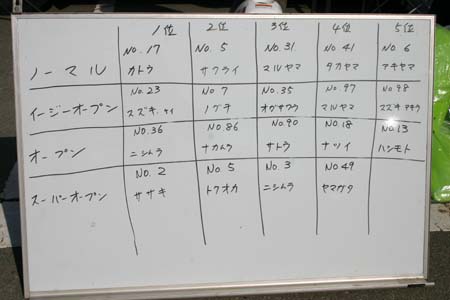 1位 2位 3位 4位 5位
No.17 No.5 No.31 No.41 No.6
ノーマル カトウ サクライ マルヤマ タカヤマ アキヤマ
No.23 No7 No.35 No.97 No.98
イージーオープン スズキ.ケイ ノグチ オグサワラ マルヤマ スズキ アキラ
No.36 No.86 No.90 No.18 No.13
オープン ニシムラ ナカムラ サトウ ナツイ ハシモト
No.2 No.5 No.3 No.49
スーパーオープン ササキ トクオカ ニシムラ ヤマガタ